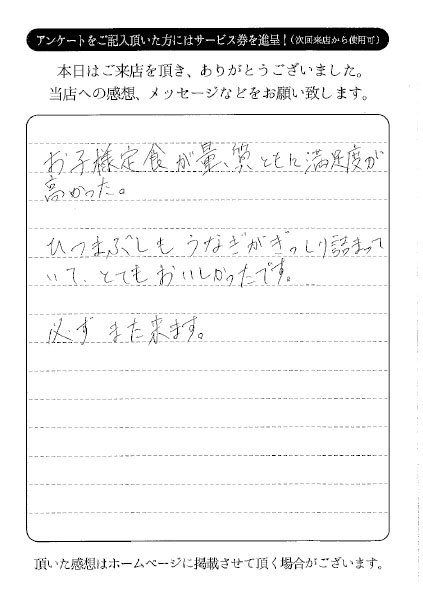 アンケートをご記入頂いた方にはサービス券を進呈！(次回来店から使用可)
本日はご来店を頂き、ありがとうございました。
当店への感想、メッセージなどをお願い致します。
お子様定食が量、質ともに満足度が
高かった。
ひつまぶしもうなぎがぎっしり詰まって
いて、とてもおいしかったです。
必ずまた来ます。
頂いた感想はホームページに掲載させて頂く場合がございます。